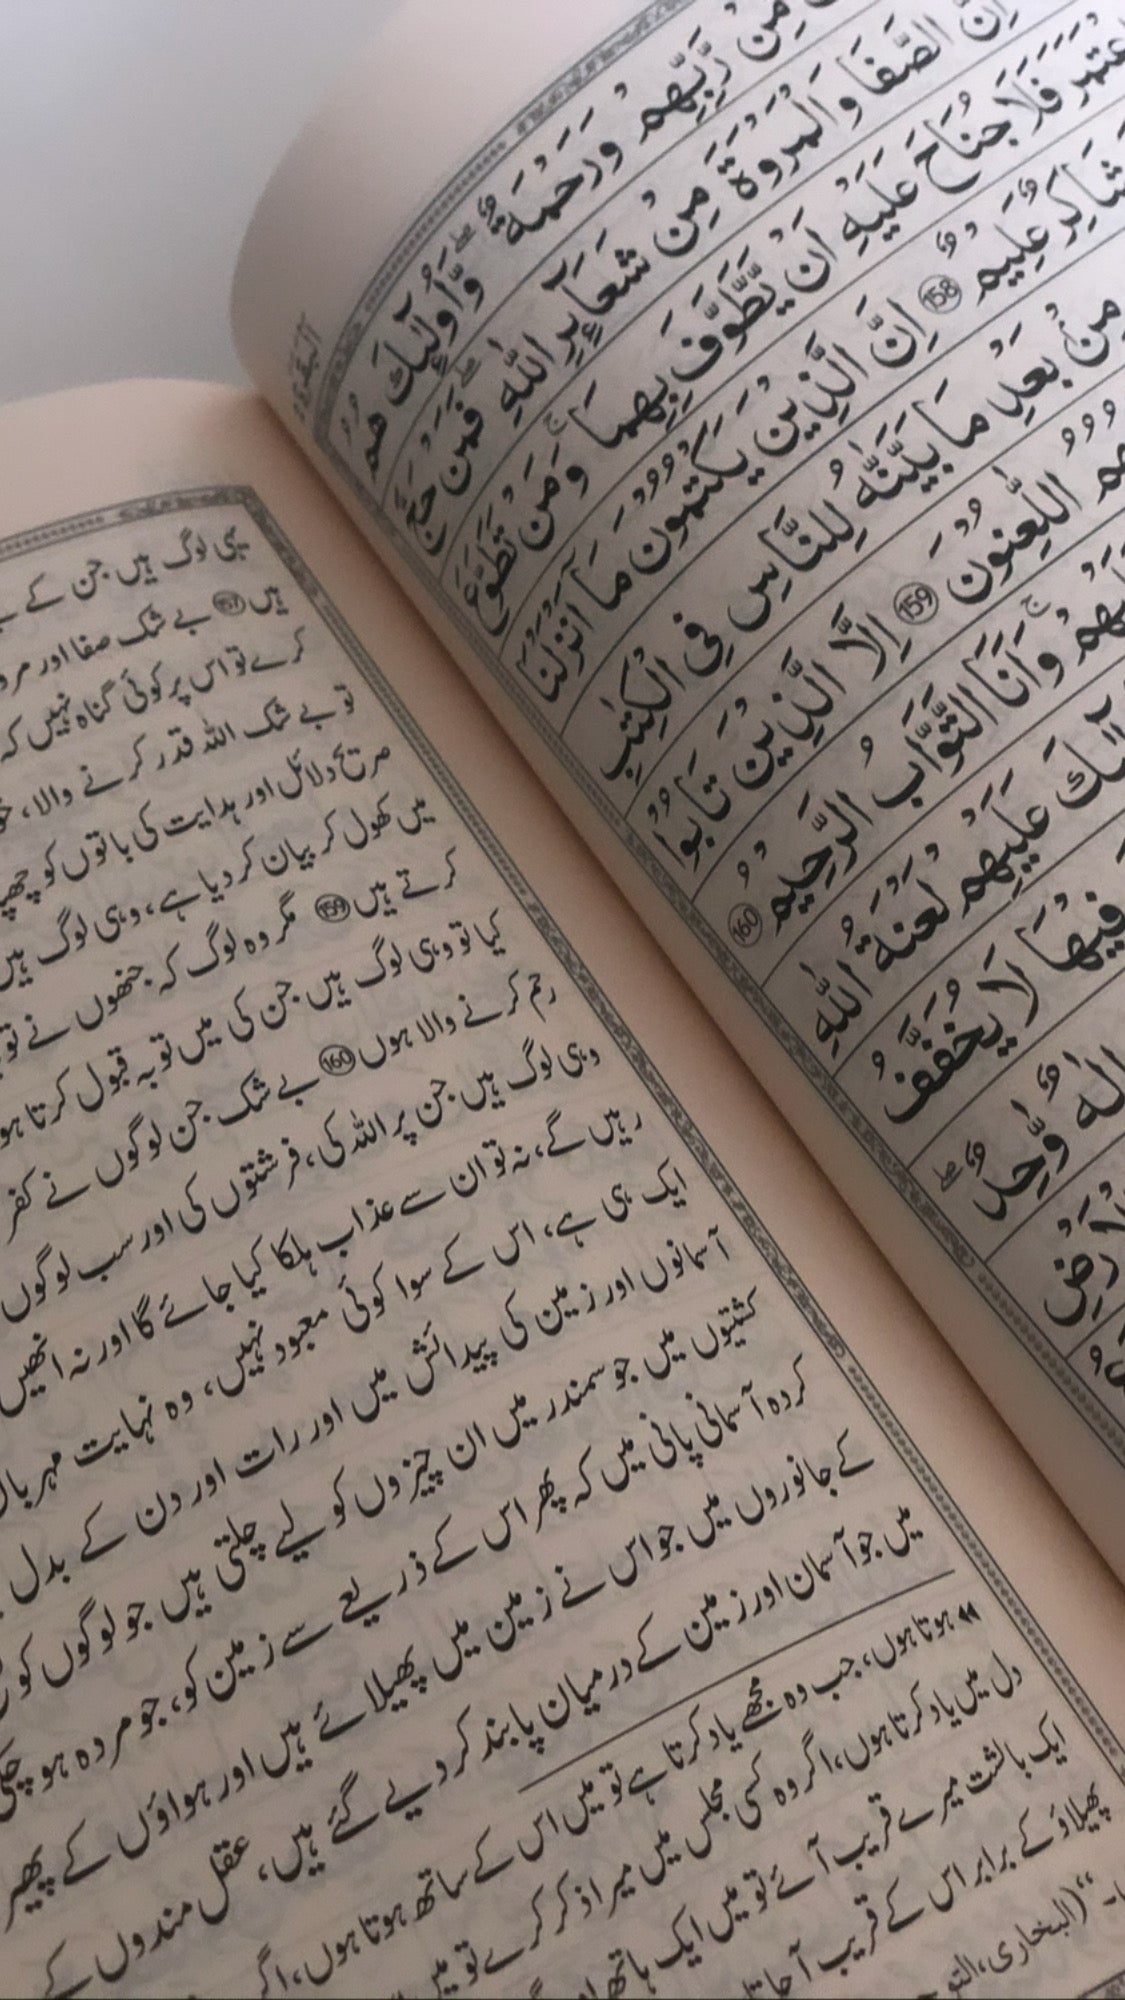 البقرة
مِّنْ رَّبِّهِمْ وَرَحْمَةٌ ۟ وَاُولٰٓئِكَ هُمُ
اِنَّ الصَّفَا وَالْمَرْوَةَ مِنْ شَعَآىِٕرِ اللّٰهِ ۚ فَمَنْ حَجَّ
فَلَا جُنَاحَ عَلَيْهِ اَنْ يَّطَّوَّفَ بِهِمَا ؕ وَمَنْ تَطَوَّعَ
شَاكِرٌ عَلِيْمٌ 158 اِنَّ الَّذِيْنَ يَكْتُمُوْنَ مَاۤ اَنْزَلْنَا
مِنْۢ بَعْدِ مَا بَيَّنّٰهُ لِلنَّاسِ فِى الْكِتٰبِ
اللّٰعِنُوْنَ 159 اِلَّا الَّذِيْنَ تَابُوْا
وَاَنَا التَّوَّابُ الرَّحِيْمُ 160
عَلَيْهِمْ لَعْنَةُ اللّٰهِ
فِيْهَا لَا يُخَفَّفُ
اِلٰهٌ وَّاحِدٌ
یہی لوگ ہیں جن کے
ہیں 157 بے شک صفا اور
کرے تو اس پر کوئی گناہ نہیں کہ
تو بے شک اللہ قدر کرنے والا،
صریح دلائل اور ہدایت کی باتوں کو
میں کھول کر بیان کر دیا ہے، وہی لوگ
کرتے ہیں 159 مگر وہ لوگ کہ جنھوں نے
کیا تو وہی لوگ ہیں جن کی میں توبہ قبول کرتا
رحم کرنے والا ہوں 160 بے شک جن لوگوں نے کفر
وہی لوگ ہیں جن پر اللہ کی، فرشتوں کی اور سب لوگوں
رہیں گے، نہ تو ان سے عذاب ہلکا کیا جائے گا اور نہ انھیں
ایک ہی ہے، اس کے سوا کوئی معبود نہیں، وہ نہایت
آسمانوں اور زمین کی پیدائش میں اور رات اور دن کے بدل
کشتیوں میں جو سمندر میں ان چیزوں کو لیے چلتی ہیں جو لوگوں کو
کردہ آسمانی پانی میں کہ پھر اس کے ذریعے سے زمین کو، جو مردہ ہو
کے جانوروں میں جو اس نے زمین میں پھیلائے ہیں اور ہواؤں کے پھیر
میں جو آسمان اور زمین کے درمیان پابند کر دیے گئے ہیں، عقل مندوں کے
ہوتا ہوں، جب وہ مجھے یاد کرتا ہے تو میں اس کے ساتھ ہوتا ہوں،
دل میں یاد کرتا ہوں، اگر وہ کسی مجلس میں میرا ذکر کرے تو
ایک بالشت میرے قریب آئے تو میں ایک ہاتھ
پھیلاؤ کے برابر اس کے قریب آ
(البخاری،